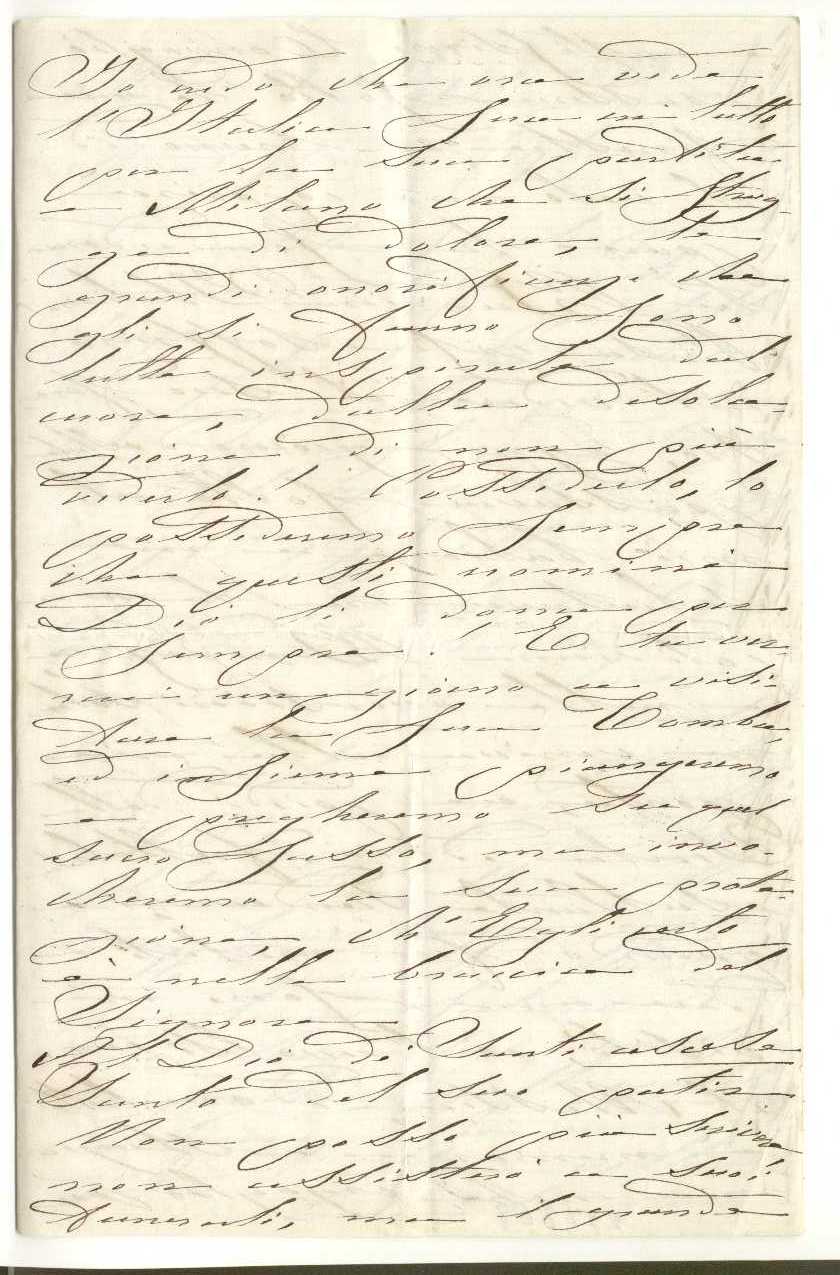 Io credo che ora vede
l'Italia Sua in lutto
per la Sua partita
e Milano che si strug-
ge di dolore, le
grandi onorificenze che
gli si fanno Sono
tutte inspirate dal
cuore, dalla desola-
zione di non più
vederlo! Possederlo, lo
possederemo Sempre
che questi uomini
Dio li dona per
Sempre! E tu ver-
rai un giorno a visi-
tare la Sua Tomba,
ed insieme piangeremo
e pregheremo Su quel
sacro Sasso, ma invo-
cheremo la Sua prote-
zione, ch'Egli certo
è nelle braccia del
Signore
Al Dio di Santi ascese
Santo del suo patir
Non posso più scrivere
non assisterò a suoi
funerali, ma il grande